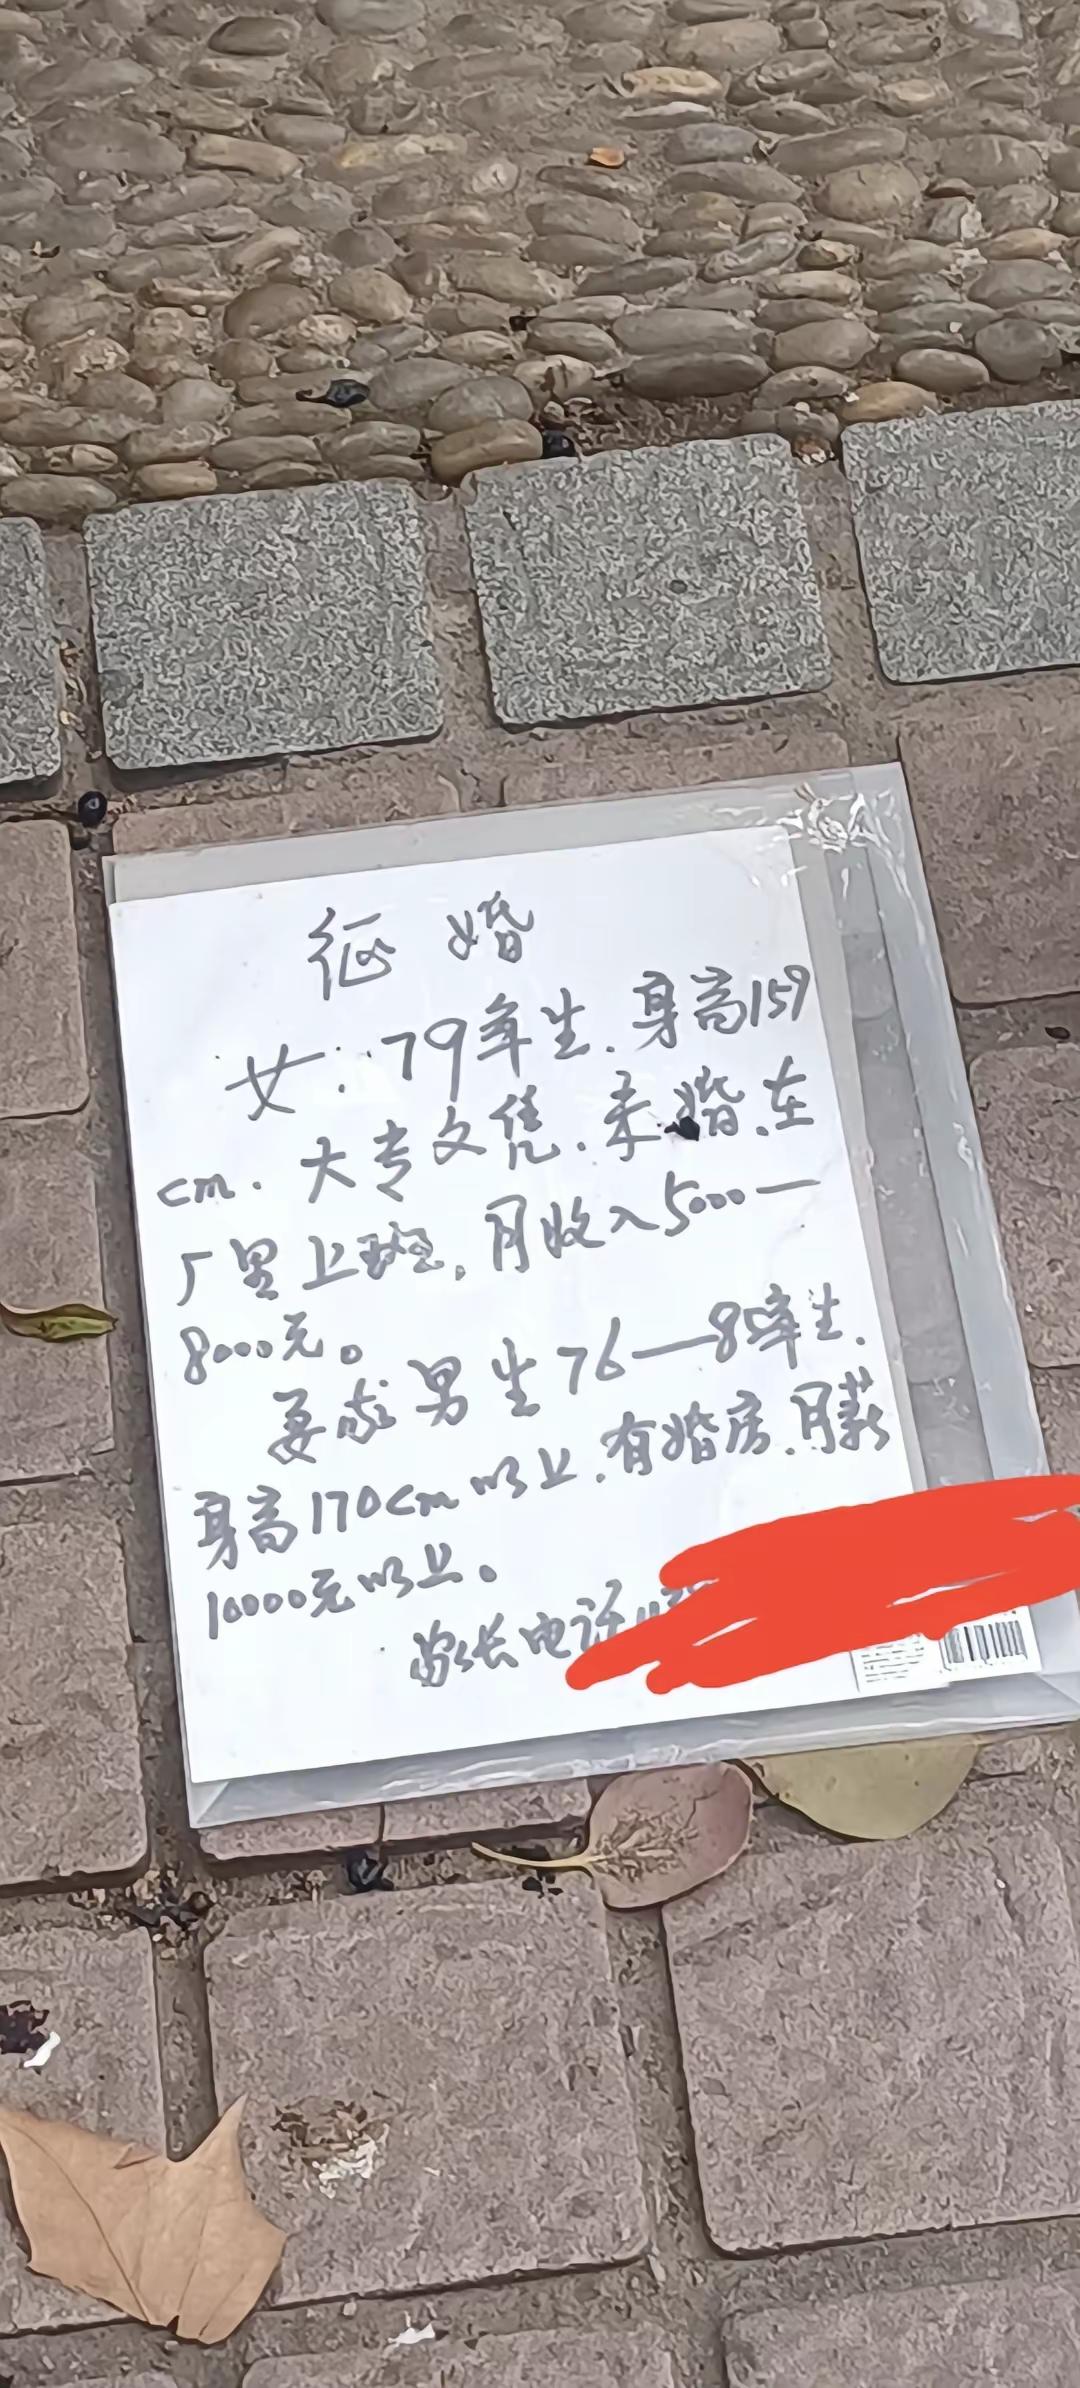 征婚
女:79年生.身高159
cm.大专文凭.未婚.在
厂里上班.月收入5000一
8000元。
要求男生76—85年生.
身高170cm以上.有婚房.月薪
10000元以上。
家长电话